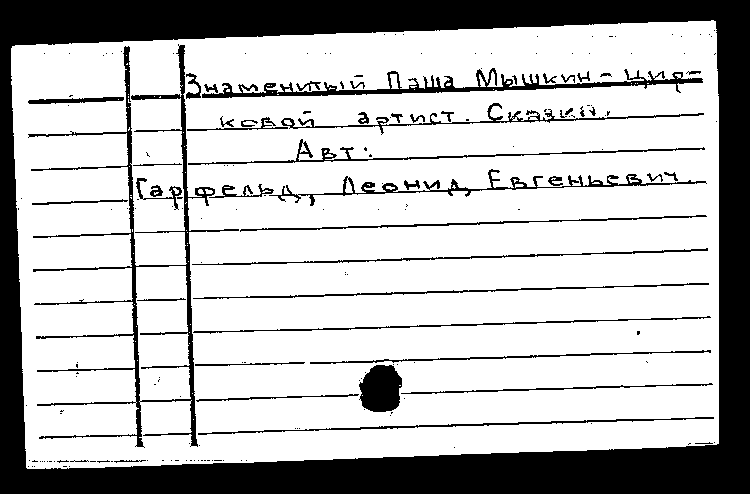 Знаменитый Паша Мышкин - цир-
ковой артист. Сказки.
Авт:
Гарфельд, Леонид Евгеньевич.